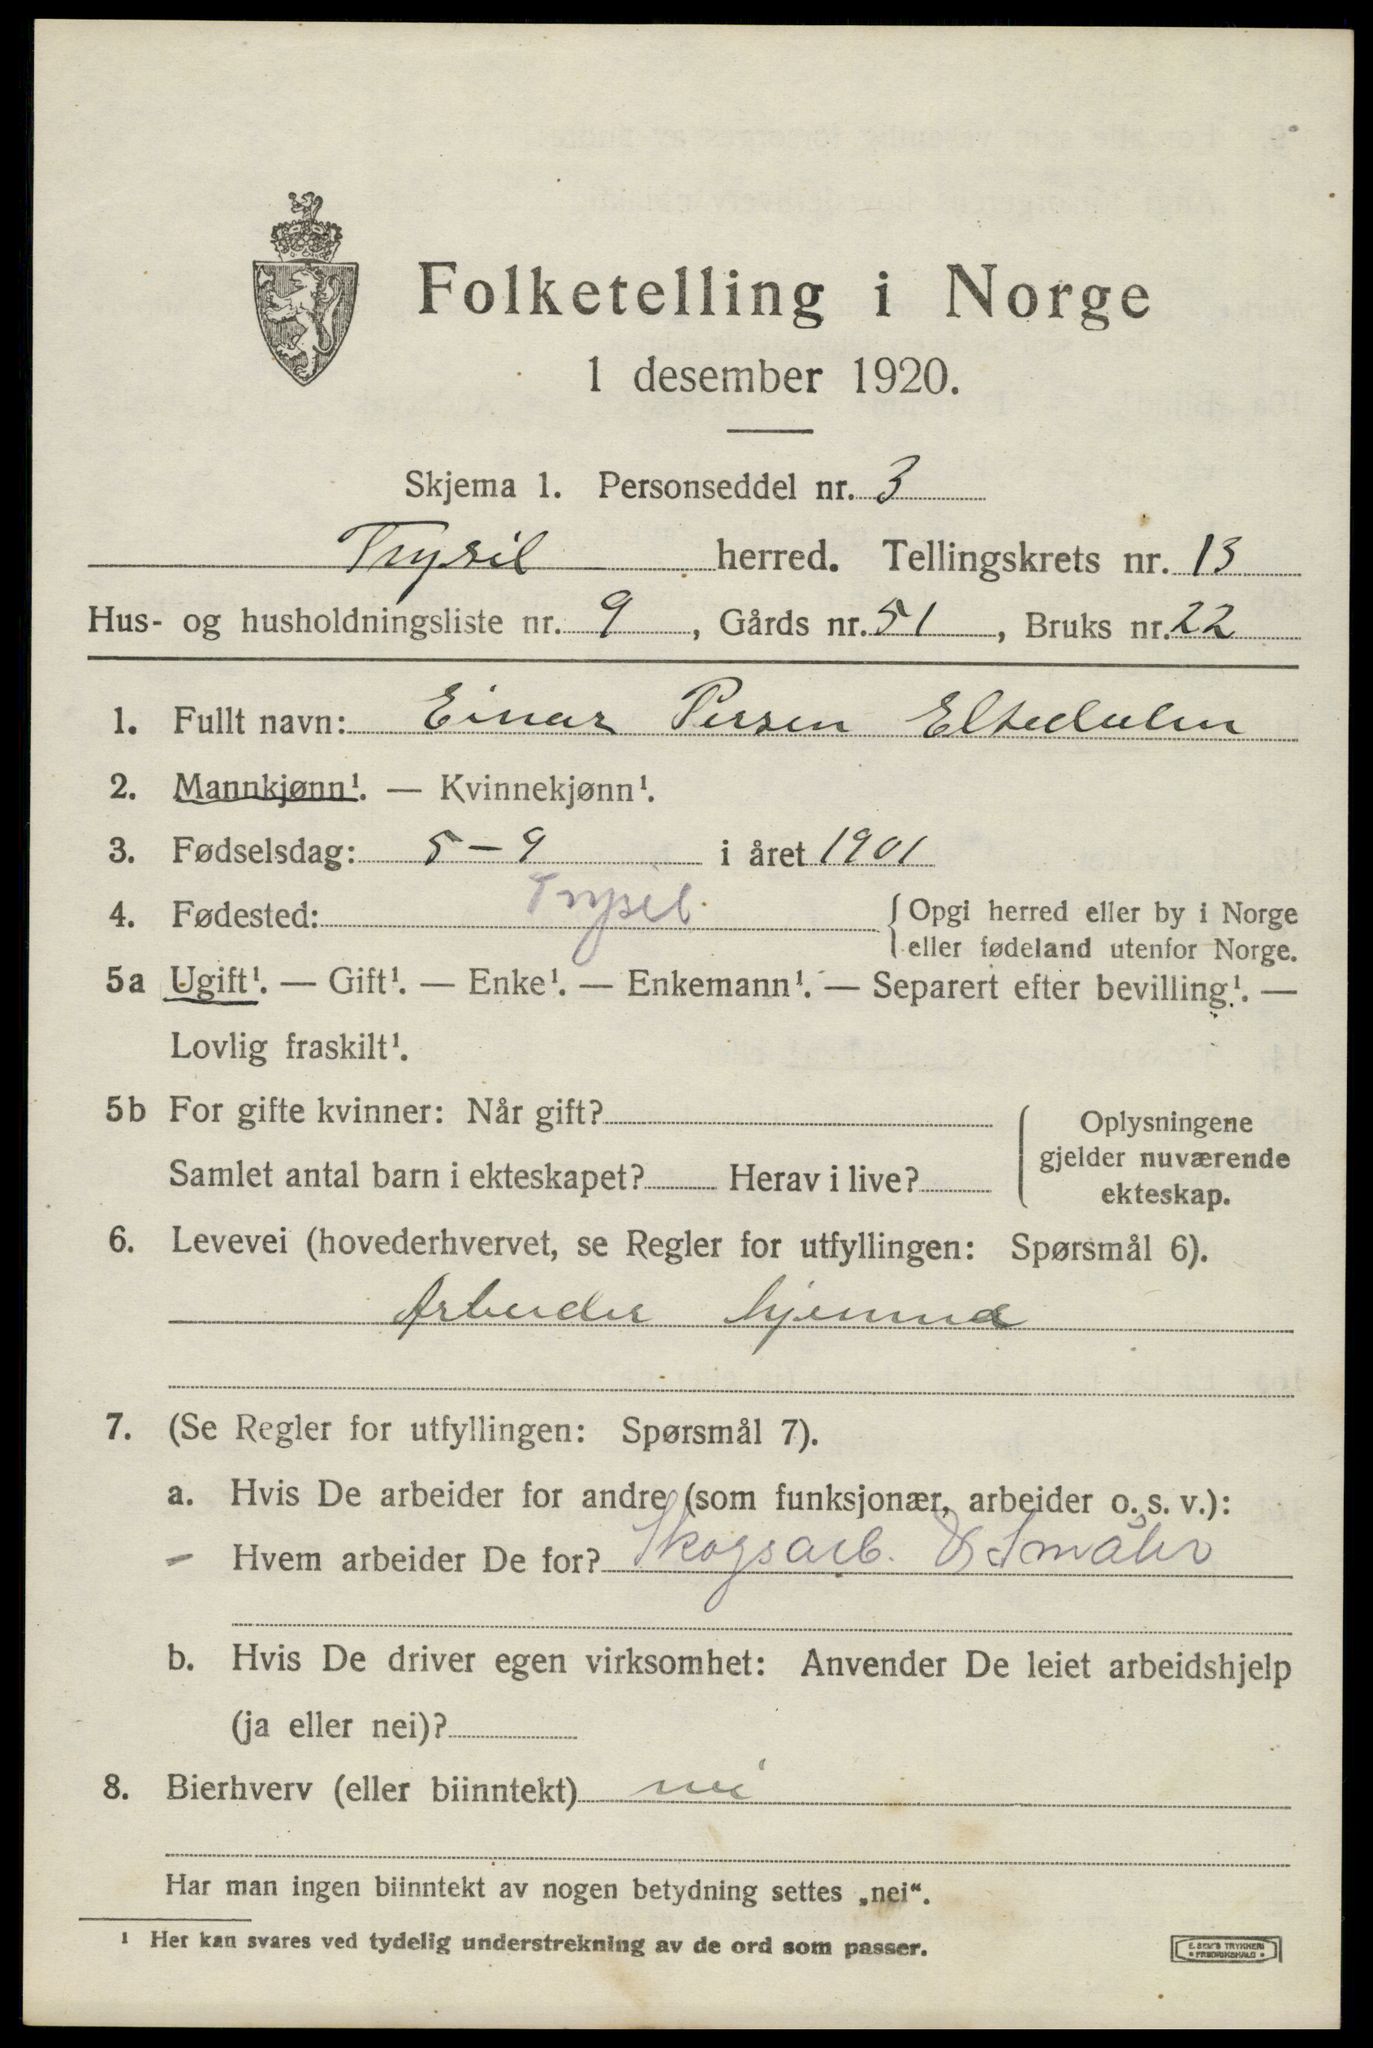 Folketelling i Norge
1 desember 1920.
Skjema 1. Personseddel nr. 3
Trysil herred. Tellingskrets nr. 13
Hus- og husholdningsliste nr. 9, Gårds nr. 51, Bruks nr. 22
1. Fullt navn: Einar Persen Eltedalen
2. Mannkjønn¹. — Kvinnekjønn¹.
3. Fødselsdag: 5 – 9 i året 1901
4. Fødested: Trysil. Opgi herred eller by i Norge
eller fødeland utenfor Norge.
5a Ugift¹. — Gift¹. — Enke¹. — Enkemann¹. — Separert efter bevilling¹. —
Lovlig fraskilt¹.
5b For gifte kvinner: Når gift? Oplysningene
gjelder nuværende
Samlet antal barn i ekteskapet? Herav i live?
ekteskap.
6. Levevei (hovederhvervet, se Regler for utfyllingen: Spørsmål 6).
Arbeider hjemme
7. (Se Regler for utfyllingen: Spørsmål 7).
a. Hvis De arbeider for andre (som funksjonær, arbeider o. s. v.):
– Hvem arbeider De for? Skogsarb.
b. Hvis De driver egen virksomhet: Anvender De leiet arbeidshjelp
(ja eller nei)?
8. Bierhverv (eller biinntekt) nei
Har man ingen biinntekt av nogen betydning settes „nei“.
¹ Her kan svares ved tydelig understrekning av de ord som passer.
E. SEM'S TRYKKERI
• FREDRIKSHALD •